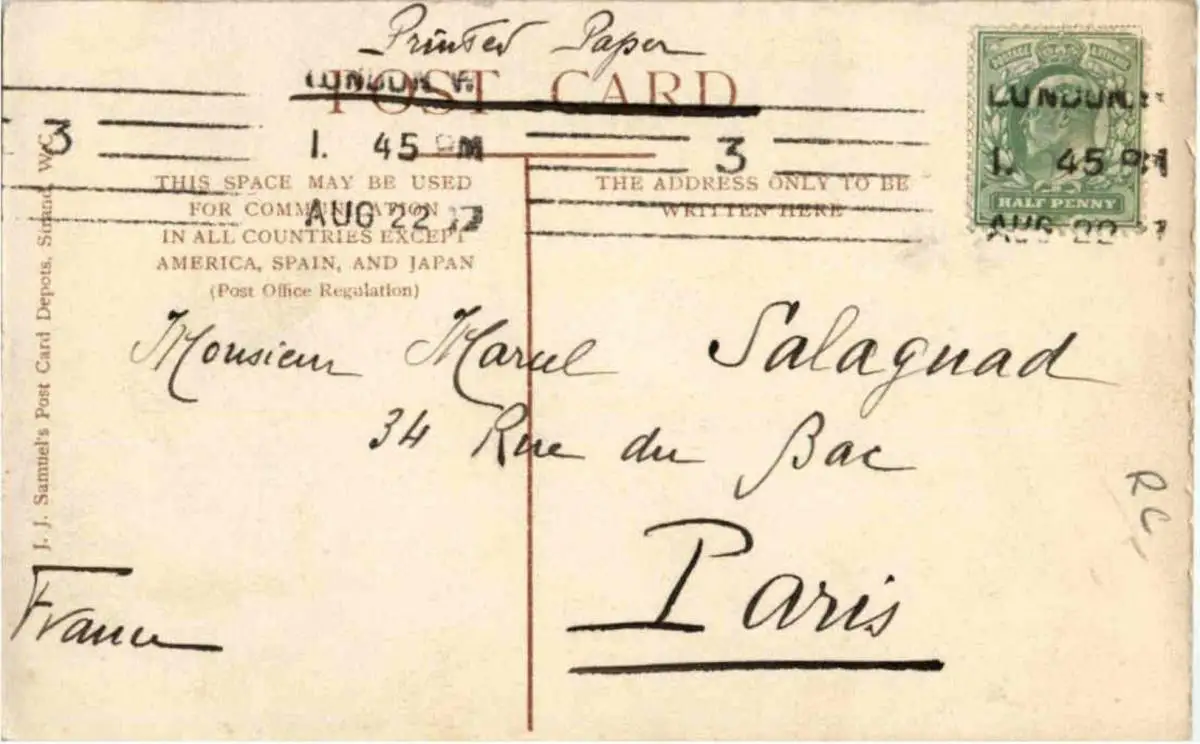 Printed Paper
POST CARD
LONDON. W
3
1. 45 PM
3
AUG 22
THIS SPACE MAY BE USED
FOR COMMUNICATION
IN ALL COUNTRIES EXCEPT
AMERICA, SPAIN, AND JAPAN
(Post Office Regulation)
THE ADDRESS ONLY TO BE
WRITTEN HERE
POSTAGE & REVENUE
HALF PENNY
LONDON.
1. 45 PM
AUG 22
Monsieur Marcel Salagnad
34 Rue du Bac
Paris
France
R C,
J. J. Samuel's Post Card Depots, Strand, W.C.